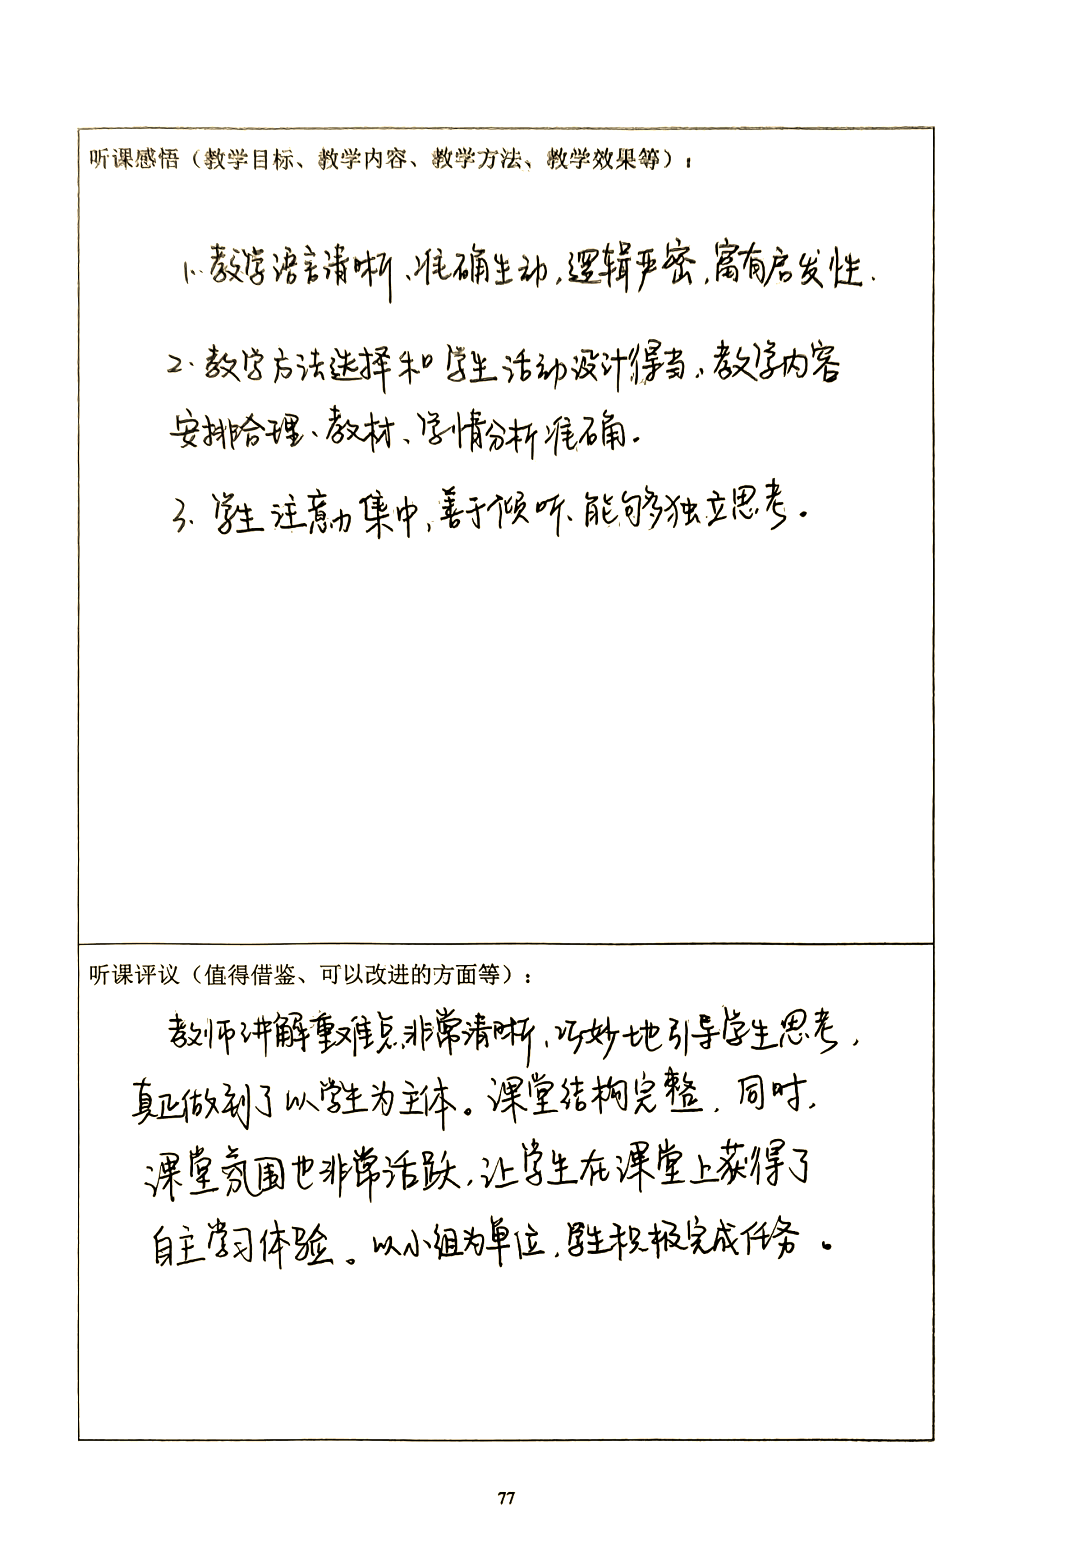 听课感悟（教学目标、教学内容、教学方法、教学效果等）：
1. 教学语言清晰、准确生动，逻辑严密，富有启发性.
2. 教学方法选择和学生活动设计得当、教学内容
安排合理、教材、学情分析准确。
3. 学生注意力集中，善于倾听、能够独立思考。
听课评议（值得借鉴、可以改进的方面等）：
教师讲解重难点非常清晰、巧妙地引导学生思考，
真正做到了以学生为主体。课堂结构完整，同时，
课堂氛围也非常活跃，让学生在课堂上获得了
自主学习体验。以小组为单位，学生积极完成任务。
77